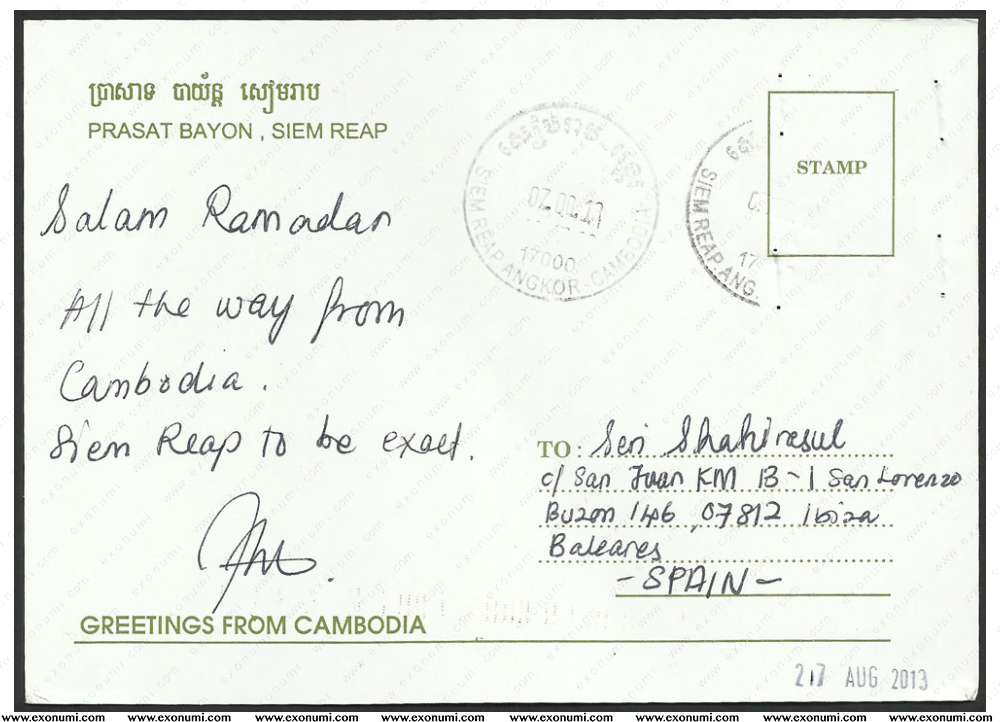 ប្រាសាទ បាយ័ន្ត សៀមរាប
PRASAT BAYON , SIEM REAP
Salam Ramadan
All the way from
Cambodia.
Siem Reap to be exact.
GREETINGS FROM CAMBODIA
SIEM REAP ANGKOR - CAMBODIA
17000
SIEM REAP ANG.
17
STAMP
TO : Seri Shahirasul
c/ San Juan KM B-1 San Lorenzo
Buzon 146, 07812 Ibiza
Baleares
- SPAIN -
27 AUG 2013
www.exonumi.com www.exonumi.com www.exonumi.com www.exonumi.com www.exonumi.com www.exonumi.com www.exonumi.com www.exonumi.com